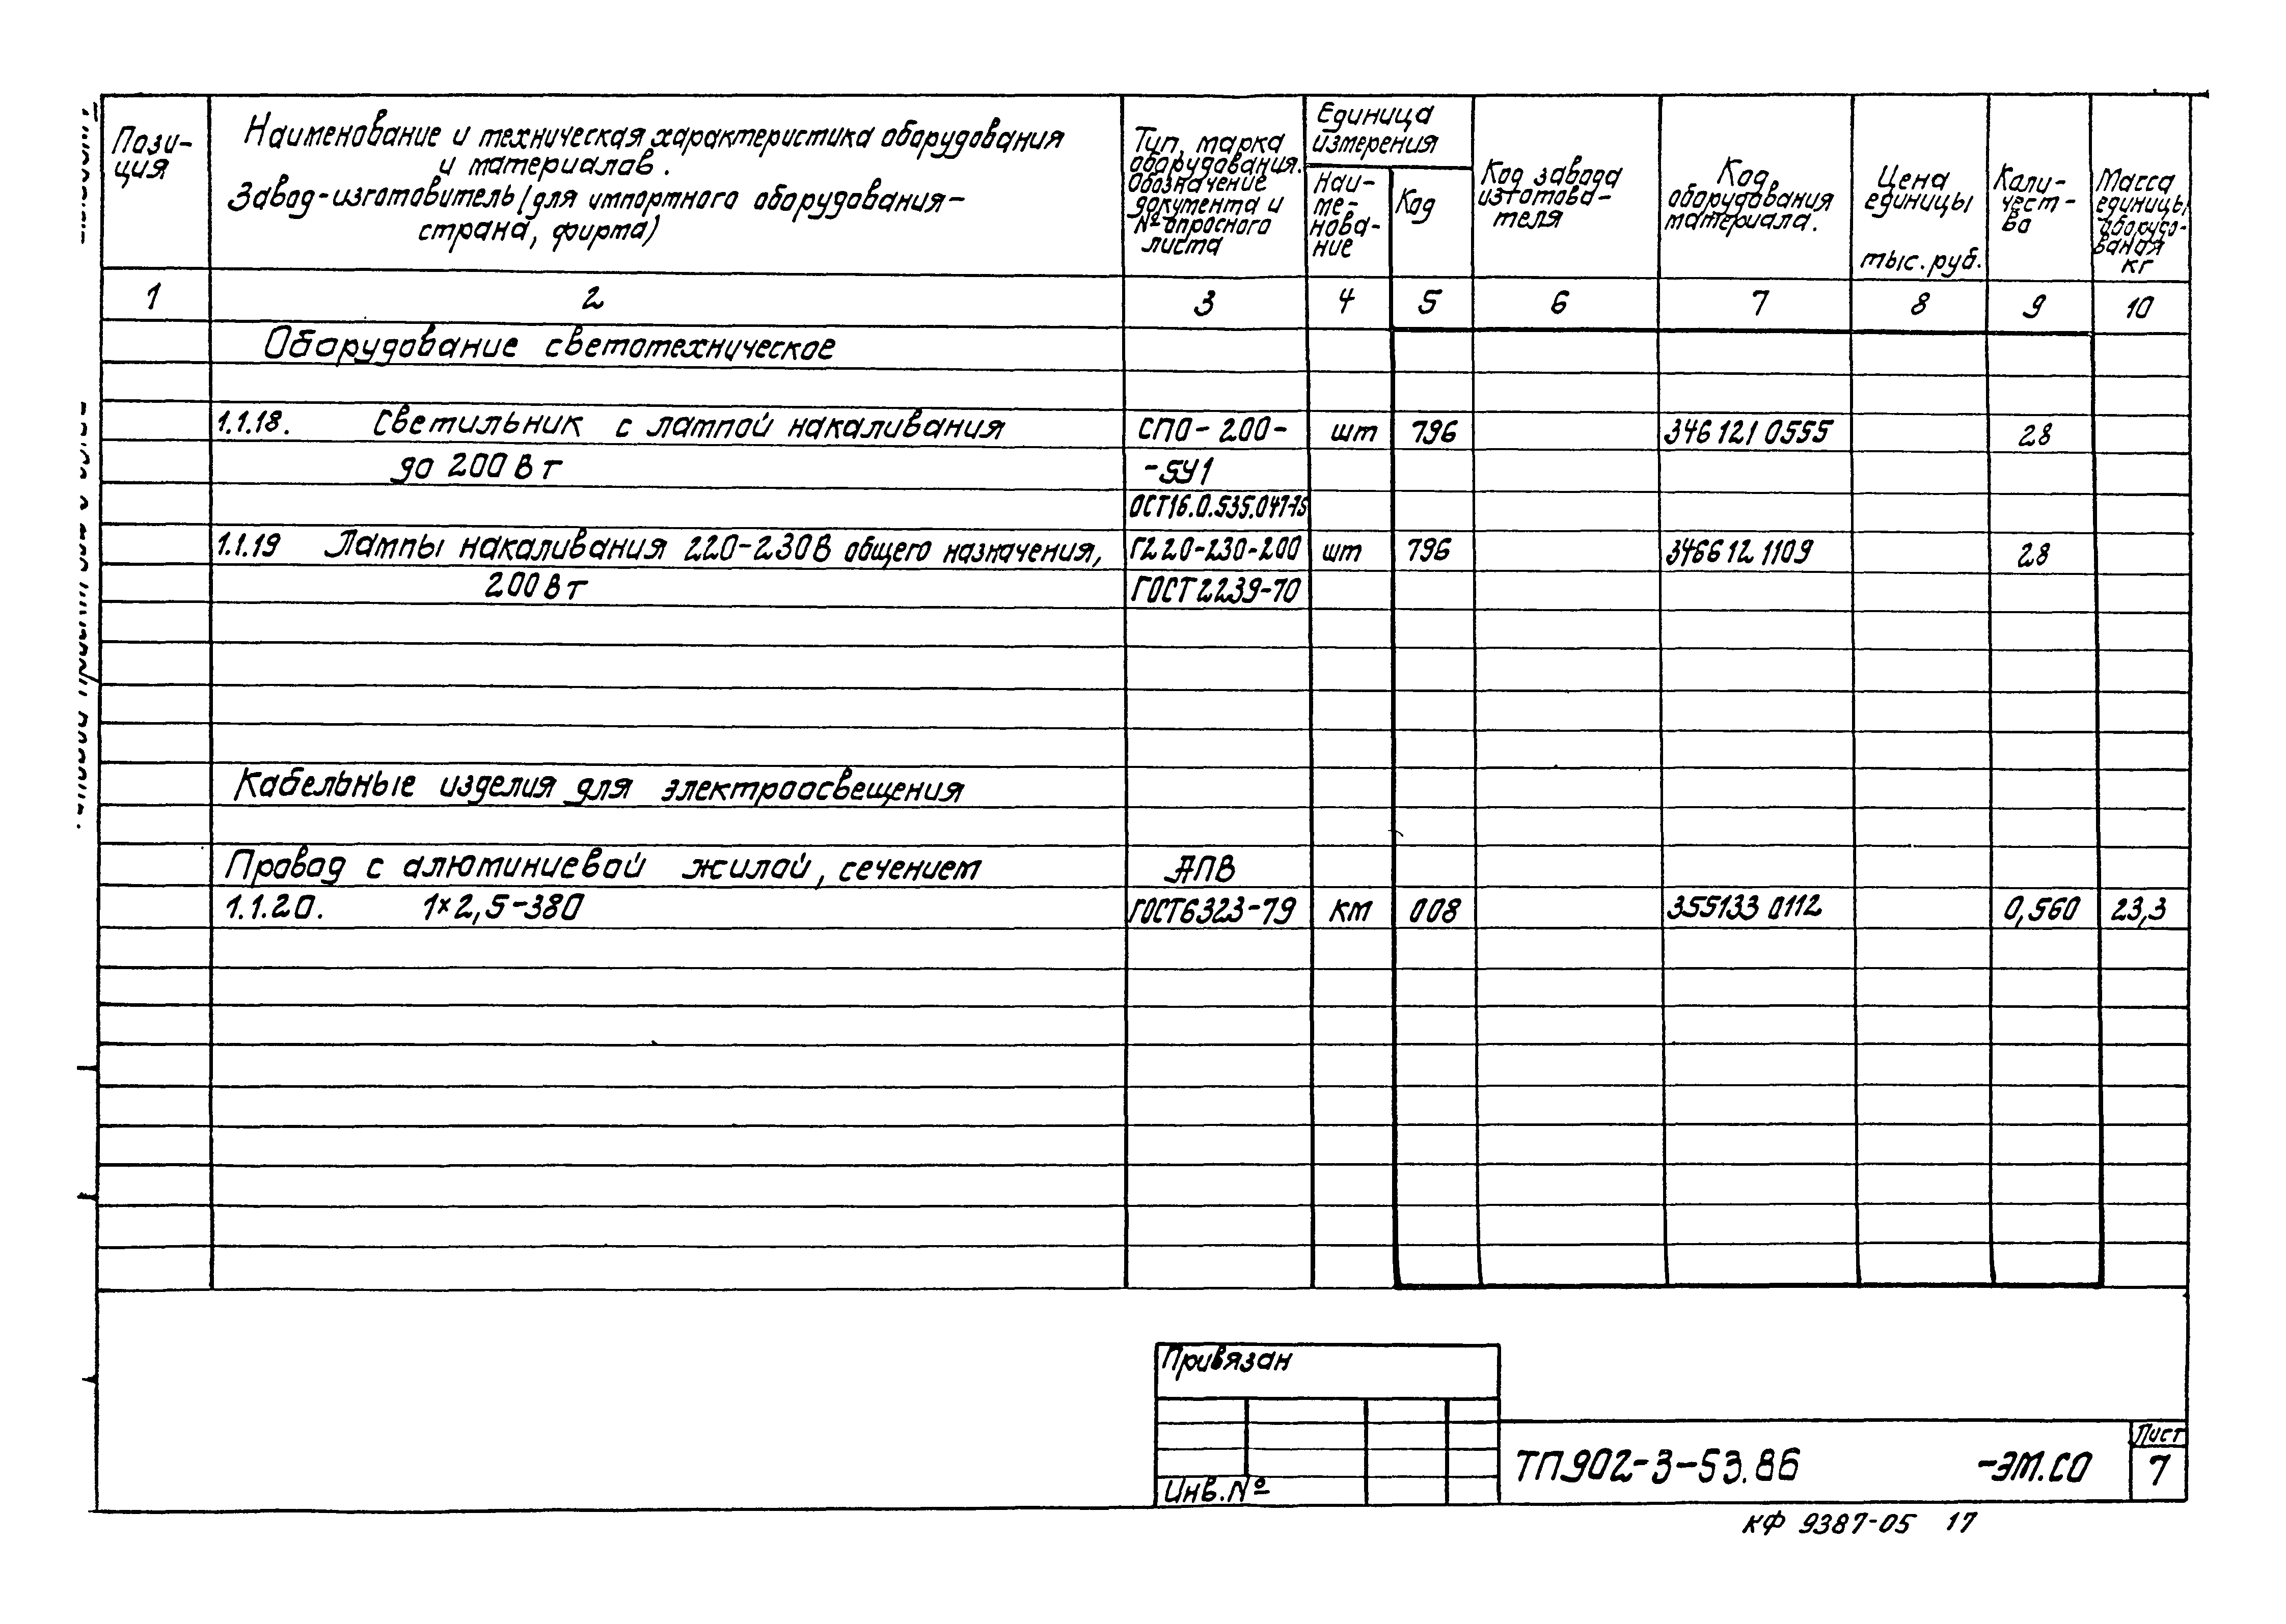 Пози-
ция
Наименование и техническая характеристика оборудования
и материалов.
Завод-изготовитель (для импортного оборудования-
страна, фирма)
Тип, марка
оборудования.
Обозначение
документа и
№ опросного
листа
Единица
измерения
Наи-
ме-
нова-
ние
Код
Код завода
изготови-
теля
Код
оборудования
материала.
Цена
единицы
тыс. руб.
Коли-
чест-
во
Масса
единицы
оборудо-
вания
кг
1 2 3 4 5 6 7 8 9 10
Оборудование светотехническое
1.1.18. Светильник с лампой накаливания СПО-200- шт 796 346 121 0555 28
до 200 Вт -5У1
ОСТ16.0.535.047-75
1.1.19 Лампы накаливания 220-230В общего назначения, Г220-230-200 шт 796 3466 12 1109 28
200 Вт ГОСТ 2239-70
Кабельные изделия для электроосвещения
Провод с алюминиевой жилой, сечением АПВ
1.1.20. 1×2,5-380 ГОСТ6323-79 км 008 355133 0112 0,560 23,3
Привязан
Инв.№
ТП902-3-53.86 -ЭМ.СО
Лист
7
КФ 9387-05 17